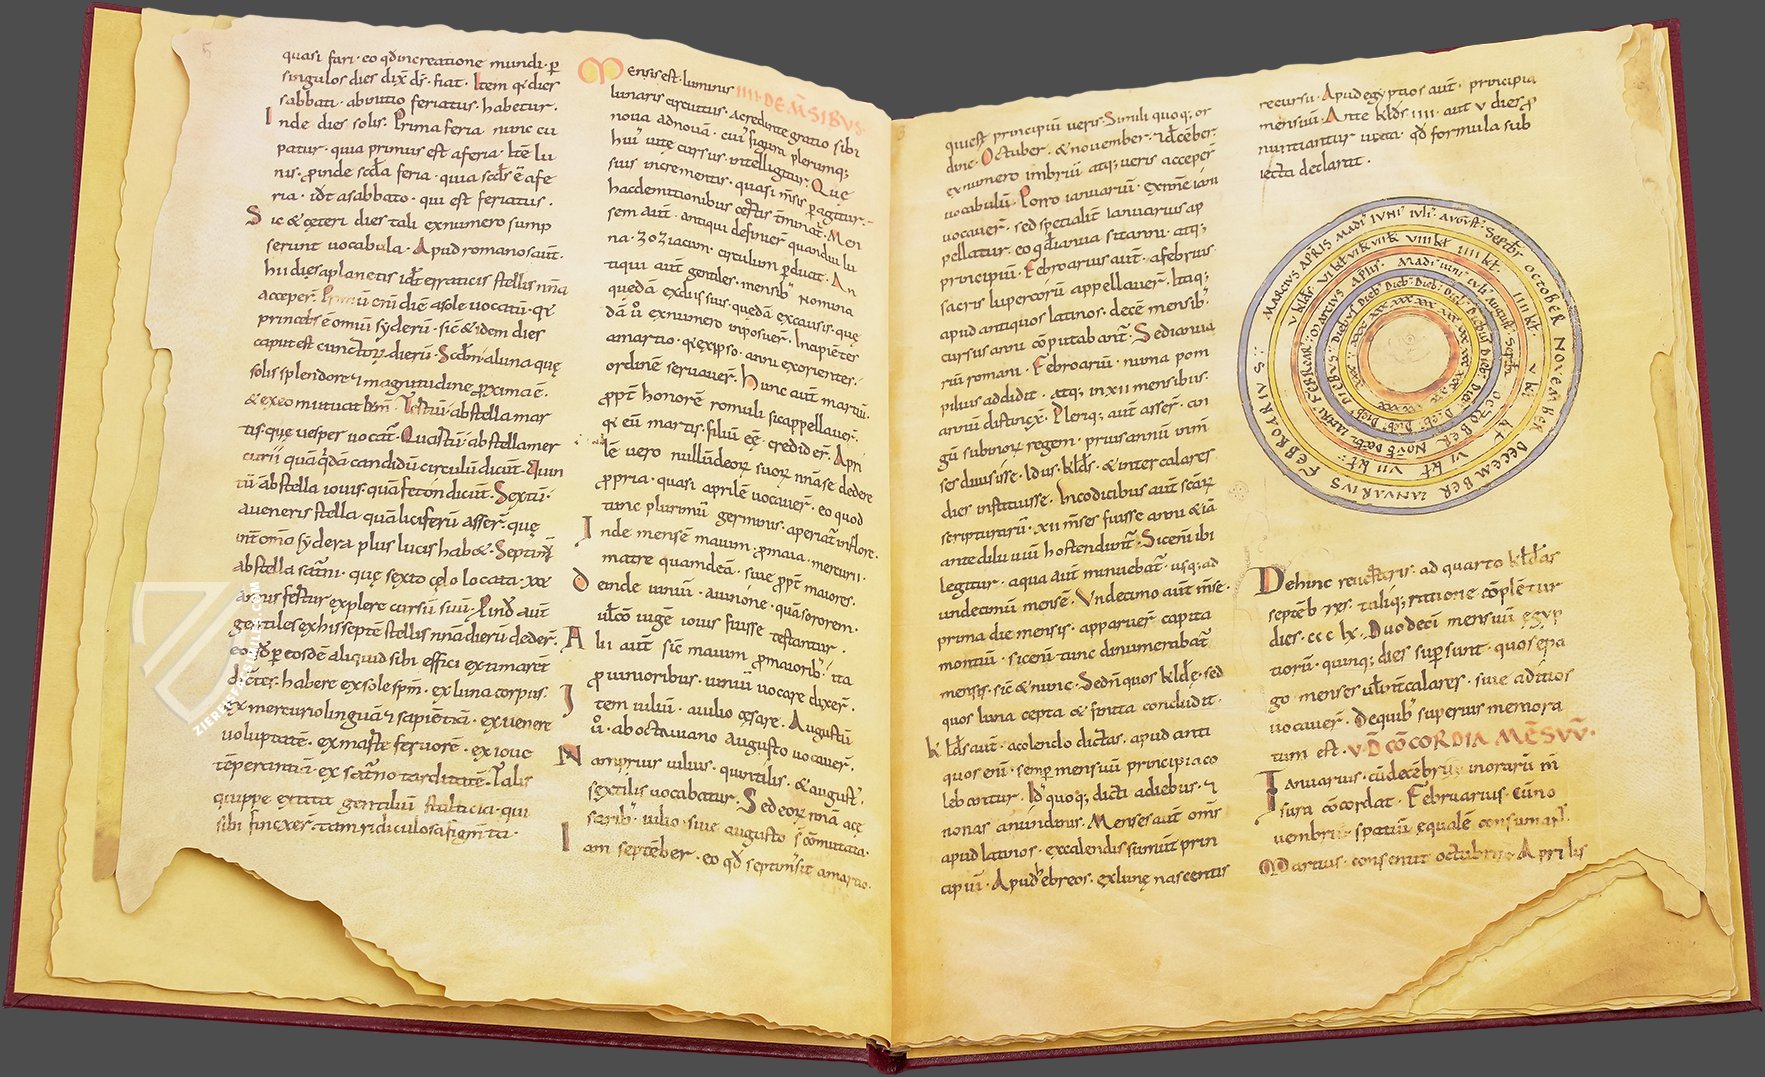 quasi fari · eo qđ increatione mundi · ꝑ
singulos dies dix̄ ds̄ · fiat · Item qđ dies
sabbati · abinitio feriatus · habetur ·
Inde dies solis · Prima feria nunc cu
patur · quia primus est aferia · Itē lu
nis · ꝓinde scđa feria · quia scđs ē afe
ria · idt̄ asabbato · qui est feriatus ·
Sic & ceteri dies tali exnumero sump
serunt uocabula · Apud romanos aut̄ ·
hii dies aplanetis id est erraticis stellis nn̄a
acceper̄ · Primū enī diē asole uocatū · qi
princeps ē omiū syderū · sic & idem dies
caput est cunctoꝝ dierū · Scđm aluna quę
solis splendore & magnitudine ꝓxima ē ·
& exeo mutuat lum̄ · Tertiū abstella mar
tis · quę uesper uocat̄ · Quartū abstella mer
curii quā qđā candidū circulū dicūt · Quin
tū abstella iouis · quā feton dicūt · Sextū ·
aueneris stella quā luciferū asser̄ · quę
int̄ omīa sydera plus lucis hab& · Septim̄
abstella saturni · quę sexto cęlo locata · xxx
annis fertur explere cursū suū · Proinđ aut̄
gentiles exhis septē stellis nn̄a dierū deder̄ ·
eo qđ ꝑ eosdē aliquid sibi effici exzimarēt
dicētes · habere exsole spm̄ · exluna corpus ·
ex mercurio linguā & sapientiā · exuenere
uoluptatē · exmarte feruorē · exioue
tēperantiā · ex saturno tarditatē · Talis
quippe extitit gentiliū stultitia · qui
sibi finxer̄ · tam ridiculosa figm̄ta ·
Mensis est · luminis IIII · DE M̄SIBVS ·
lunaris circuitus · acredintegratio sibi
noua adnouā · cui' figura plerumq;
hui' uite cursus · intelligitur · Quę
suis incrementis · quasi m̄sis ꝑagitur ·
hac demitionibus certis t̄minat̄ · Men
sem aut̄ · antiqui definier̄ quandiu lu
na · zoziacum · circulum ꝑducit · An
tiqui aut̄ gentiles · mensib' nomina
quedā ex diis suis · quedā excausis · quę
dā ů exnumero inposuer̄ · Incipiētes
amartio · qi exipso · anni exorientes ·
ordinē seruauer̄ · hunc aut̄ martiū ·
ꝓpt̄ honorē romuli sic appellauer̄ ·
qi eū martis · filiū eē · credider̄ · Apri
lē uero nullū deoꝝ suoꝝ · nn̄a se dedere
ꝓpria · quasi aprilē uocauer̄ · eo quod
tunc plurimū germinis · aperiat̄ inflore ·
Inde mensē maium · ꝓ maia · mercurii ·
matre quam deā · siue ꝓpt̄ maiores ·
deinde iuniū · aiunone · quā sororem ·
ul̄ cō iugē iouis fuisse testantur ·
Alii aut̄ sic̄ maium ꝓ maiorib' · ita
ꝓ iunioribus · iuniū uocare dixer̄ ·
Item iuliū · aiulio cęsare · Augustū
ů · ab octauiano augusto uocauer̄ ·
Nam prius iulius · quintilis · & august' ·
sextilis uocabatur · Sed eoꝝ nn̄a acę
sarib' · iulio · siue augusto s̄ cōmutata ·
Iam septēber · eo qđ septim' sit amartio ·
qui est principiū ueris · Simili quoq; or
dine · October · & nouember · & decēber ·
exnumero imbriū atq; ueris acceper̄
uocabulū · Porro ianuariū · exnn̄e iani
uocauer̄ · sed specialit̄ ianuarius ap
pellatur · eo qđ ianua sit anni · atq;
principiū · Febroarius aut̄ · afebruis
sacris lupercorū appellauer̄ · Itaq;
apud antiquos latinos · decē mensib'
cursus anni cōputabant̄ · Sed ianua
riū romani · Febroariū · numa pom
pilius addidit · atq; in xii mensibus
annū distinx̄ · Pleriq; aut̄ asser̄ · an
gū sabinoꝝ regem · prius annū inm̄
ses diuisisse · Idus · kld̄s · & intercalares
dies instituisse · In codicibus aut̄ scāꝝ
scripturarū · xii m̄ses fuisse anni & iā
ante diluuiū hostendunt̄ · Sic enī ibi
legitur · aqua aut̄ minuebat̄ · usq; ad
undecimū mensē · Vndecimo aut̄ m̄se ·
prima die mensis · apparuer̄ capita
montiū · sic enī tunc dinumerabat̄
mensis · sic̄ & nunc · Sed n̄ quos kld̄ę · sed
quos luna cepta & finita concludit ·
kld̄s aut̄ · acolendo dictas · apud anti
quos enī · semꝑ mensiū principia co
lebantur · Id' quoq; dicti adiebus · &
nonas anundinis · Menses aut̄ omīs
apud latinos · excalendis sumūt prin
cipiū · Apud ebreos · exlunę nascentis
recursu · Apud egyptios aut̄ · principia
mensiū · Ante kld̄s IIII · aut v dies ꝓ
nuntiantur iuxta · qđ formula sub
iecta declarat ·
MARCIUS APRILIS MADI' IUNI' IULI' AUGUST' Septēbr OCTOBER NOVEMBER DECEMBER IANUARIUS FEBROARIUS
Dehinc reuerteris · ad quarto kld̄as
septēb res · taliq; ratione cōplētur
dies · ccc lx · Duodecī mensiū egyp
tiorū · quinq; dies suꝑ sunt · quos epa
go menses ul̄ int̄calares · siue aditios
uocauer̄ · dequib' superius memora
tum est · V · D̄ CŌCORDIA MĒSVV̄ ·
Ianuarius · cū decēbriū inorarū m̄
sura cōcordat · Februarius · cū no
uembris · spatiū equalē consumat̄ ·
Martius · consentit octubris · Aprilis